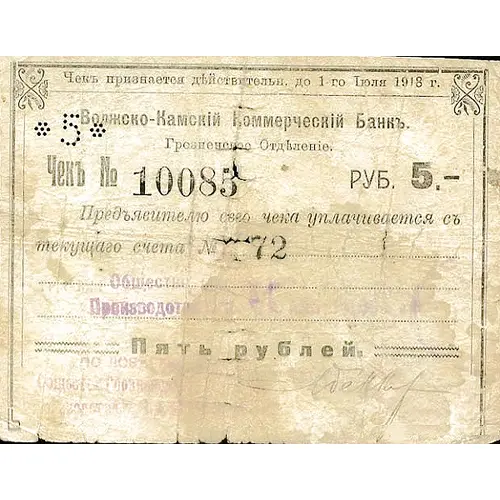 Чекъ признается дѣйствительн. до 1-го Іюля 1918 г.
*5*
Волжско-Камскій Коммерческій Банкъ.
Грозненское Отдѣленіе.
Чекъ № 10085 РУБ. 5.-
Предъявителю сего чека уплачивается съ
текущаго счета № 72
Общество
Производст
Пять рублей.